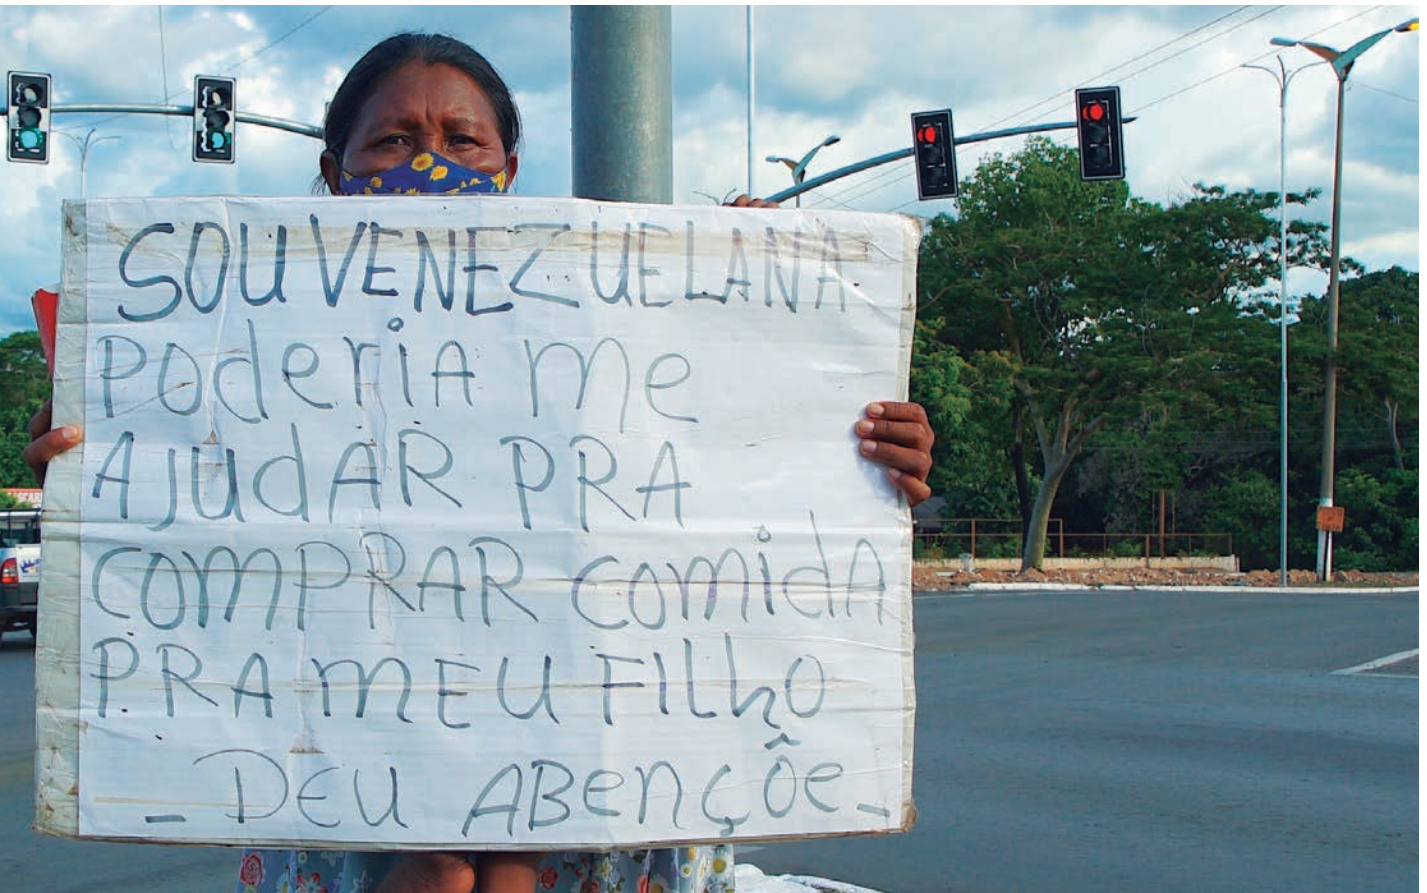 SOU VENEZUELANA
PoderiA me
AJUdAR PRA
COMPRAR ComidA
PRA MEU FILhO
- DEU ABençõe -